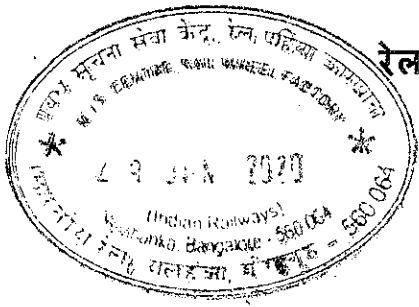 रेल
प्रबंध सूचना सेवा केंद्र, रेल पहिया कारखाना
M I S CENTRE, RAIL WHEEL FACTORY
JAN 2020
(Indian Railways)
Yelahanka, Bangalore - 560 064
यलहंका, - 560 064